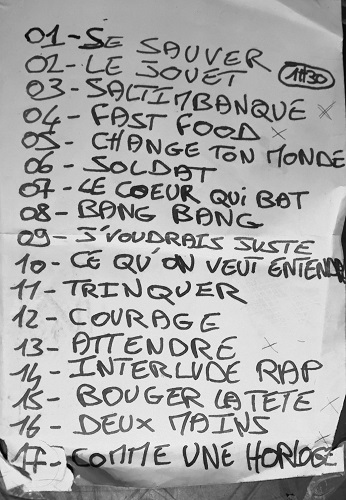 01-SE SAUVER
02-LE JOUET
1H30
03-SALTIMBANQUE x
04-FAST FOOD x
05-CHANGE TON MONDE
06-SOLDAT
07-LE COEUR QUi BAT
08-BANG BANG
09-J'VOUDRAIS JUSTE
10-CE QU'ON VEUT ENTENDRE
11-TRINQUER
12-COURAGE
13-ATTENDRE x
14-INTERLUDE RAP
15-BOUGER LA TETE x
16-DEUX MAINS
17-COMME UNE HORLOGE